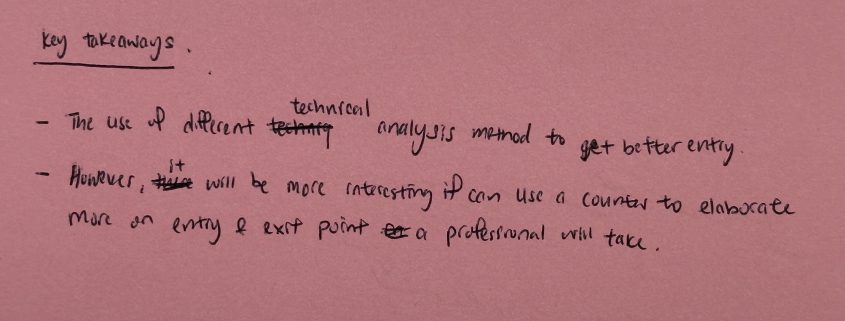 key takeaways.
- The use of different technical analysis method to get better entry.
- However, it will be more interesting if can use a counter to elaborate
more on entry & exit point a professional will take.